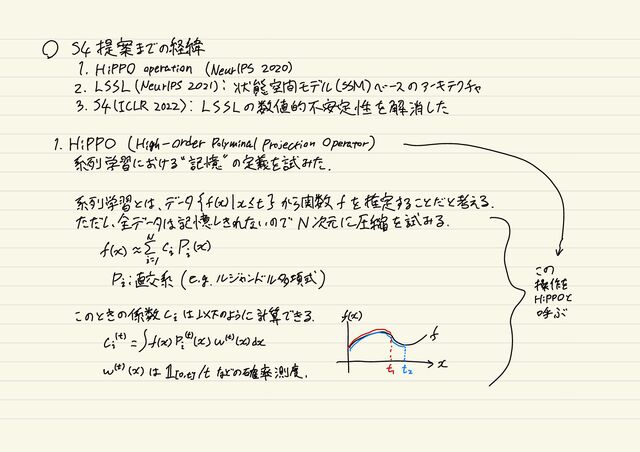 ○ S4 提案までの経緯
1. HiPPO operation (NeurIPS 2020)
2. LSSL (NeurIPS 2021): 状態空間モデル(SSM)ベースのアーキテクチャ
3. S4 (ICLR 2022): LSSLの数値的不安定性を解消した
1. HiPPO (High-Order Polyminal Projection Operator)
系列学習における"記憶"の定義を試みた.
系列学習とは、データ {f(x) | x ≤ t} から関数 f を推定することだと考える.
ただし、全データは記憶しきれないので N次元に圧縮を試みる.
f(x) ≈ Σ_{i=1}^{N} C_i P_i(x)
P_i: 直交系 (e.g. ルジャンドル多項式)
このときの係数 C_i は以下のように計算できる.
C_i^{(t)} = ∫ f(x) P_i^{(t)}(x) w^{(t)}(x) dx
w^{(t)}(x) は 𝟙_{[0,t]}/t などの確率測度.
f(x)
f
x
t_1
t_2
この
操作を
HiPPOと
呼ぶ